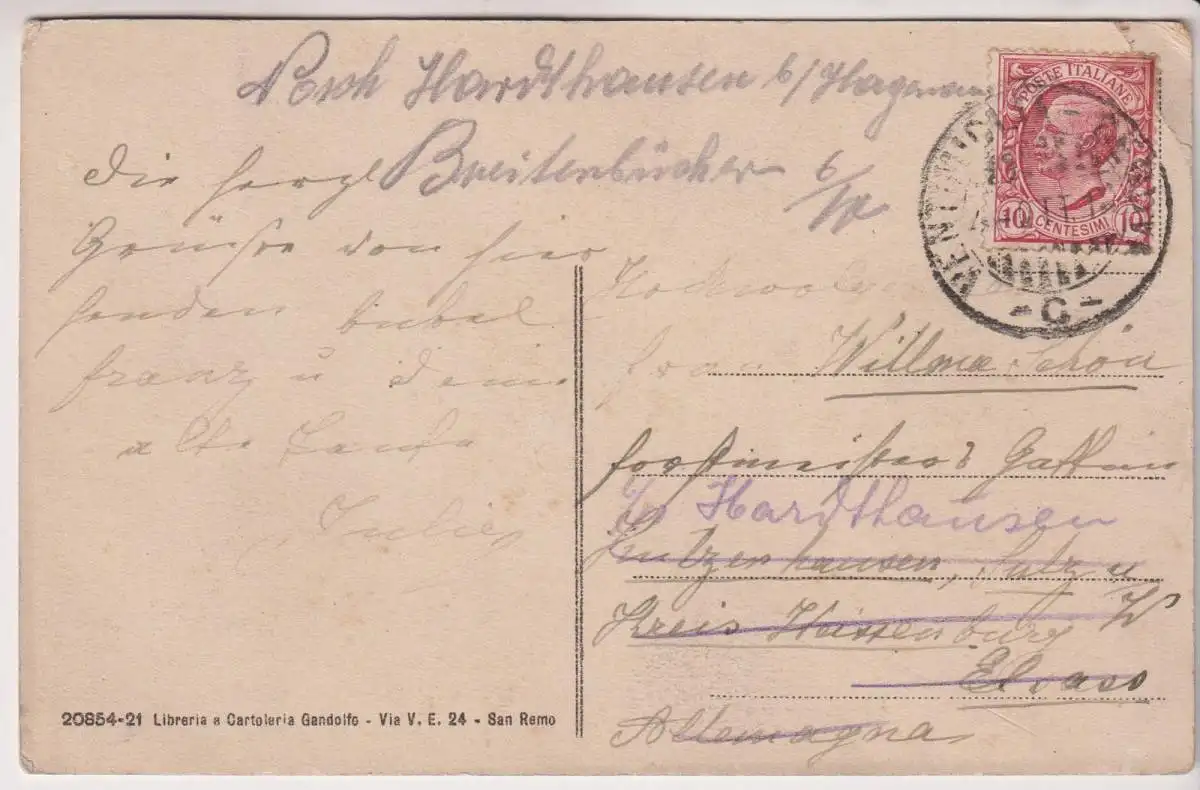 Nach Hardthausen b/Hagenau
Breitenbücher 6/IX
die herzl
Grüsse von hier
senden
franz u deine
alte Tante
Julie
POSTE ITALIANE
10 CENTESIMI 10
- C -
Hochwolgeb
frau Willma Schön
forstmeisters Gattin
Hardthausen
Sulzerhausen, Sulz u W
Kreis Weissenburg
Elsass
Allemagna
20854-21 Libreria e Cartoleria Gandolfo - Via V. E. 24 - San Remo